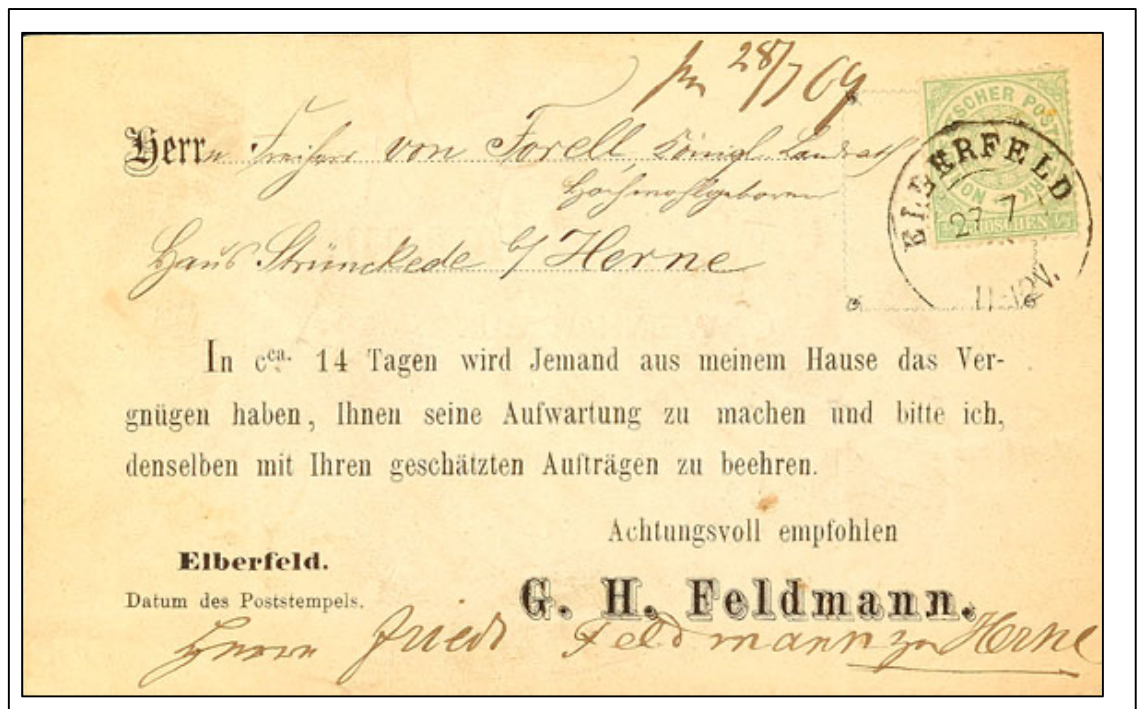 28/7 69
Herrn Freiherr von Forell, Königl. Landrath
Hochwohlgeboren
Haus Strünckede b/ Herne
ELBERFELD
27 7
11-12V.
In cca. 14 Tagen wird Jemand aus meinem Hause das Ver-
gnügen haben, Ihnen seine Aufwartung zu machen und bitte ich,
denselben mit Ihren geschätzten Aufträgen zu beehren.
Achtungsvoll empfohlen
Elberfeld.
Datum des Poststempels.
G. H. Feldmann.
Herrn Friedr Feldmann zu Herne